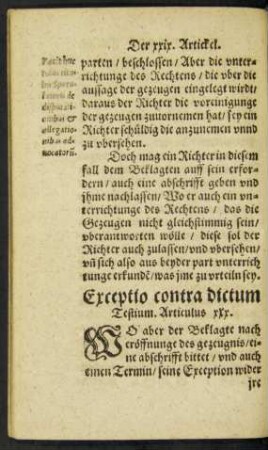 Der xxix. Artickel.
parten / beschlossen / Aber die vnter-
richtunge des Rechtens / die vber die
aussage der gezeugen eingelegt wirdt /
daraus der Richter die voreinigunge
der gezeugen zuuornemen hat / sey ein
Richter schüldig die anzunemen vnnd
zu vbersehen.
Doch mag ein Richter in diesem
fall dem Beklagten auff sein erfor-
dern / auch eine abschrifft geben vnd
jhme nachlassen / Wo er auch ein vn-
terrichtunge des Rechtens / das die
Gezeugen nicht gleichstimmig sein /
vberantworten wölle / diese sol der
Richter auch zulassen / vnd vbersehen /
vñ sich also aus beyder part vnterrich
tunge erkundē / was jme zu vrteiln sey.
Exceptio contra dictum
Testium. Articulus xxx.
WO aber der Beklagte nach
eröffnunge des gezeugnis / ei-
ne abschrifft bittet / vnd auch
einen Termin / seine Exception wider
jre